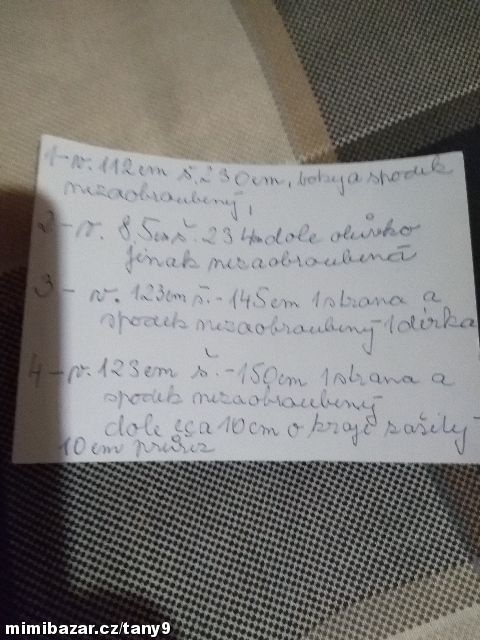 1-v. 112cm š. 230cm, boky a spodek
nezaobroubený,
2-v. 85cm š. 234cm dole okénko
jinak nezaobroubená
3- v. 123cm š.-145cm 1 strana a
spodek nezaobroubený 1 dírka
4-v. 123cm š.-150cm 1 strana a
spodek nezaobroubený
dole cca 10cm o kraje zašitý
10cm průřez
mimibazar.cz/tany9